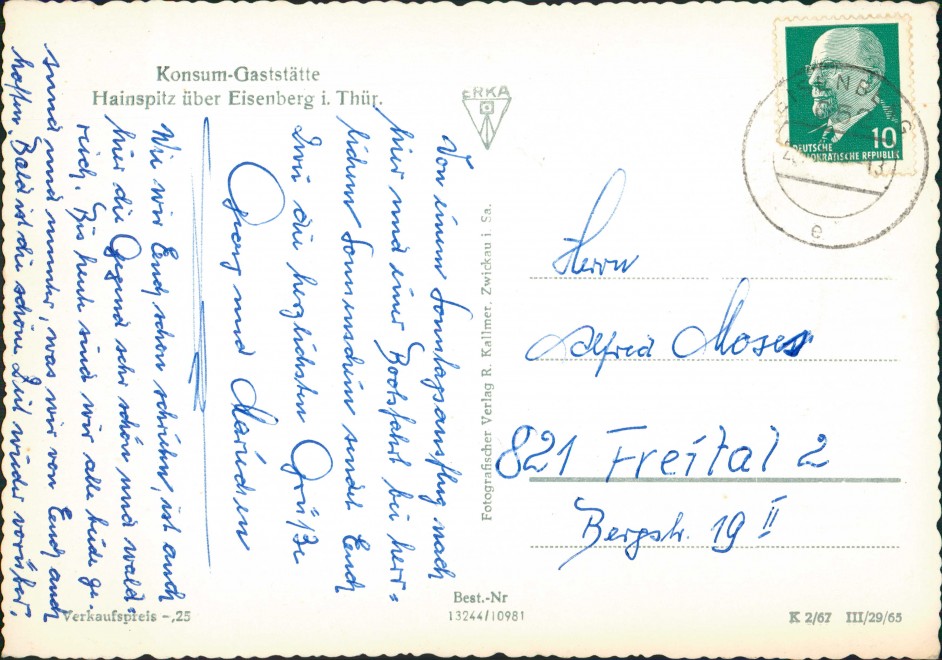 Konsum-Gaststätte
Hainspitz über Eisenberg i. Thür.
ERKA
Von einem Sonntagsausflug nach
hier und einer Bootsfahrt bei herr=
lichem Sonnenschein sendet Euch
Zwei die herzlichsten Grüße
Georg und Mariechen
Wie wir Euch schon schrieben, ist auch
hier die Gegend sehr schön und wald=
reich. Bis heute sind wir alle beide ge-
sund und munter, was wir von Euch auch
hoffen. Bald ist die schöne Zeit wieder vorüber.
Verkaufspreis -,25
Fotografischer Verlag R. Kallmer, Zwickau i. Sa.
Best.-Nr
13244/10981
DEUTSCHE
DEMOKRATISCHE REPUBLIK
10
EISENBERG
e
Herrn
Alfred Moses
821 Freital 2
Bergstr. 19 II
K 2/67 III/29/65